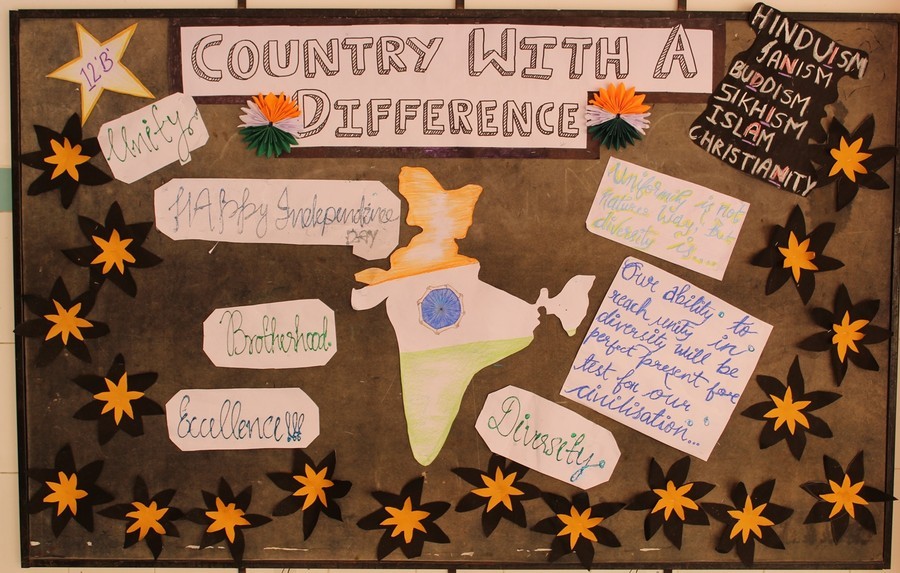 12'B'
COUNTRY WITH A
DIFFERENCE
HINDUISM
JANISM
BUDDISM
SIKHISM
ISLAM
CHRISTIANITY
Unity
HAppy Independence
DAY
Uniformity is not
Natures Way; But
diversity is.....
Our ability to
reach unity in
diversity will be
perfect present fore
test for our
civilisation...
Brotherhood
Excellence!!!
Diversity